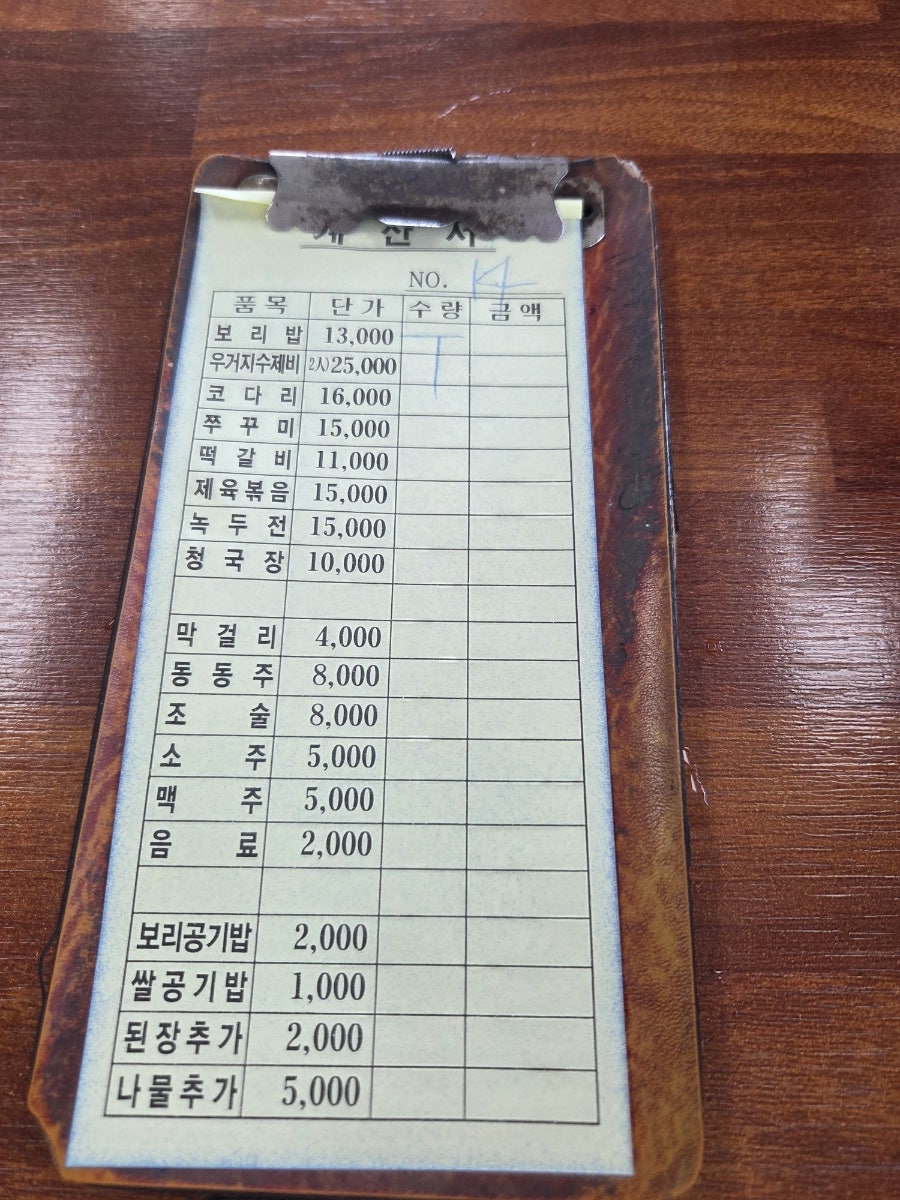 계 산 서
NO. 14
품목 단가 수량 금액
보리밥 13,000
우거지수제비 2人)25,000
코다리 16,000
쭈꾸미 15,000
떡갈비 11,000
제육볶음 15,000
녹두전 15,000
청국장 10,000
막걸리 4,000
동동주 8,000
조술 8,000
소주 5,000
맥주 5,000
음료 2,000
보리공기밥 2,000
쌀공기밥 1,000
된장추가 2,000
나물추가 5,000